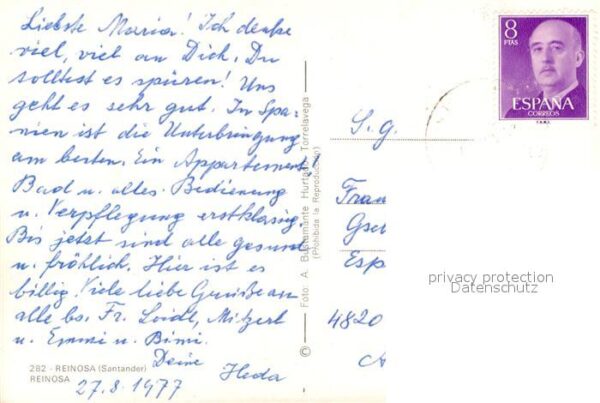 Liebste Maria! Ich denke
viel, viel an Dich. Du
solltest es spüren! Uns
geht es sehr gut. In Spa-
nien ist die Unterbringung
am besten. Ein Appartement!
Bad u. alles. Bedienung
u. Verpflegung erstklassig.
Bis jetzt sind alle gesund
u. fröhlich. Hier ist es
billig. Viele liebe Grüße an
alle bs. Fr. Loidl, Mitzerl
u. Emmi u. Bimi.
Deine
Heda
27.8.1977
282 - REINOSA (Santander)
REINOSA
© Foto: A. Bustamante Hurtado - Torrelavega
(Prohibida la Reproducción)
8
PTAS
ESPAÑA
CORREOS
S. g.
Frau
Gsw
Esp
4820
privacy protection
Datenschutz